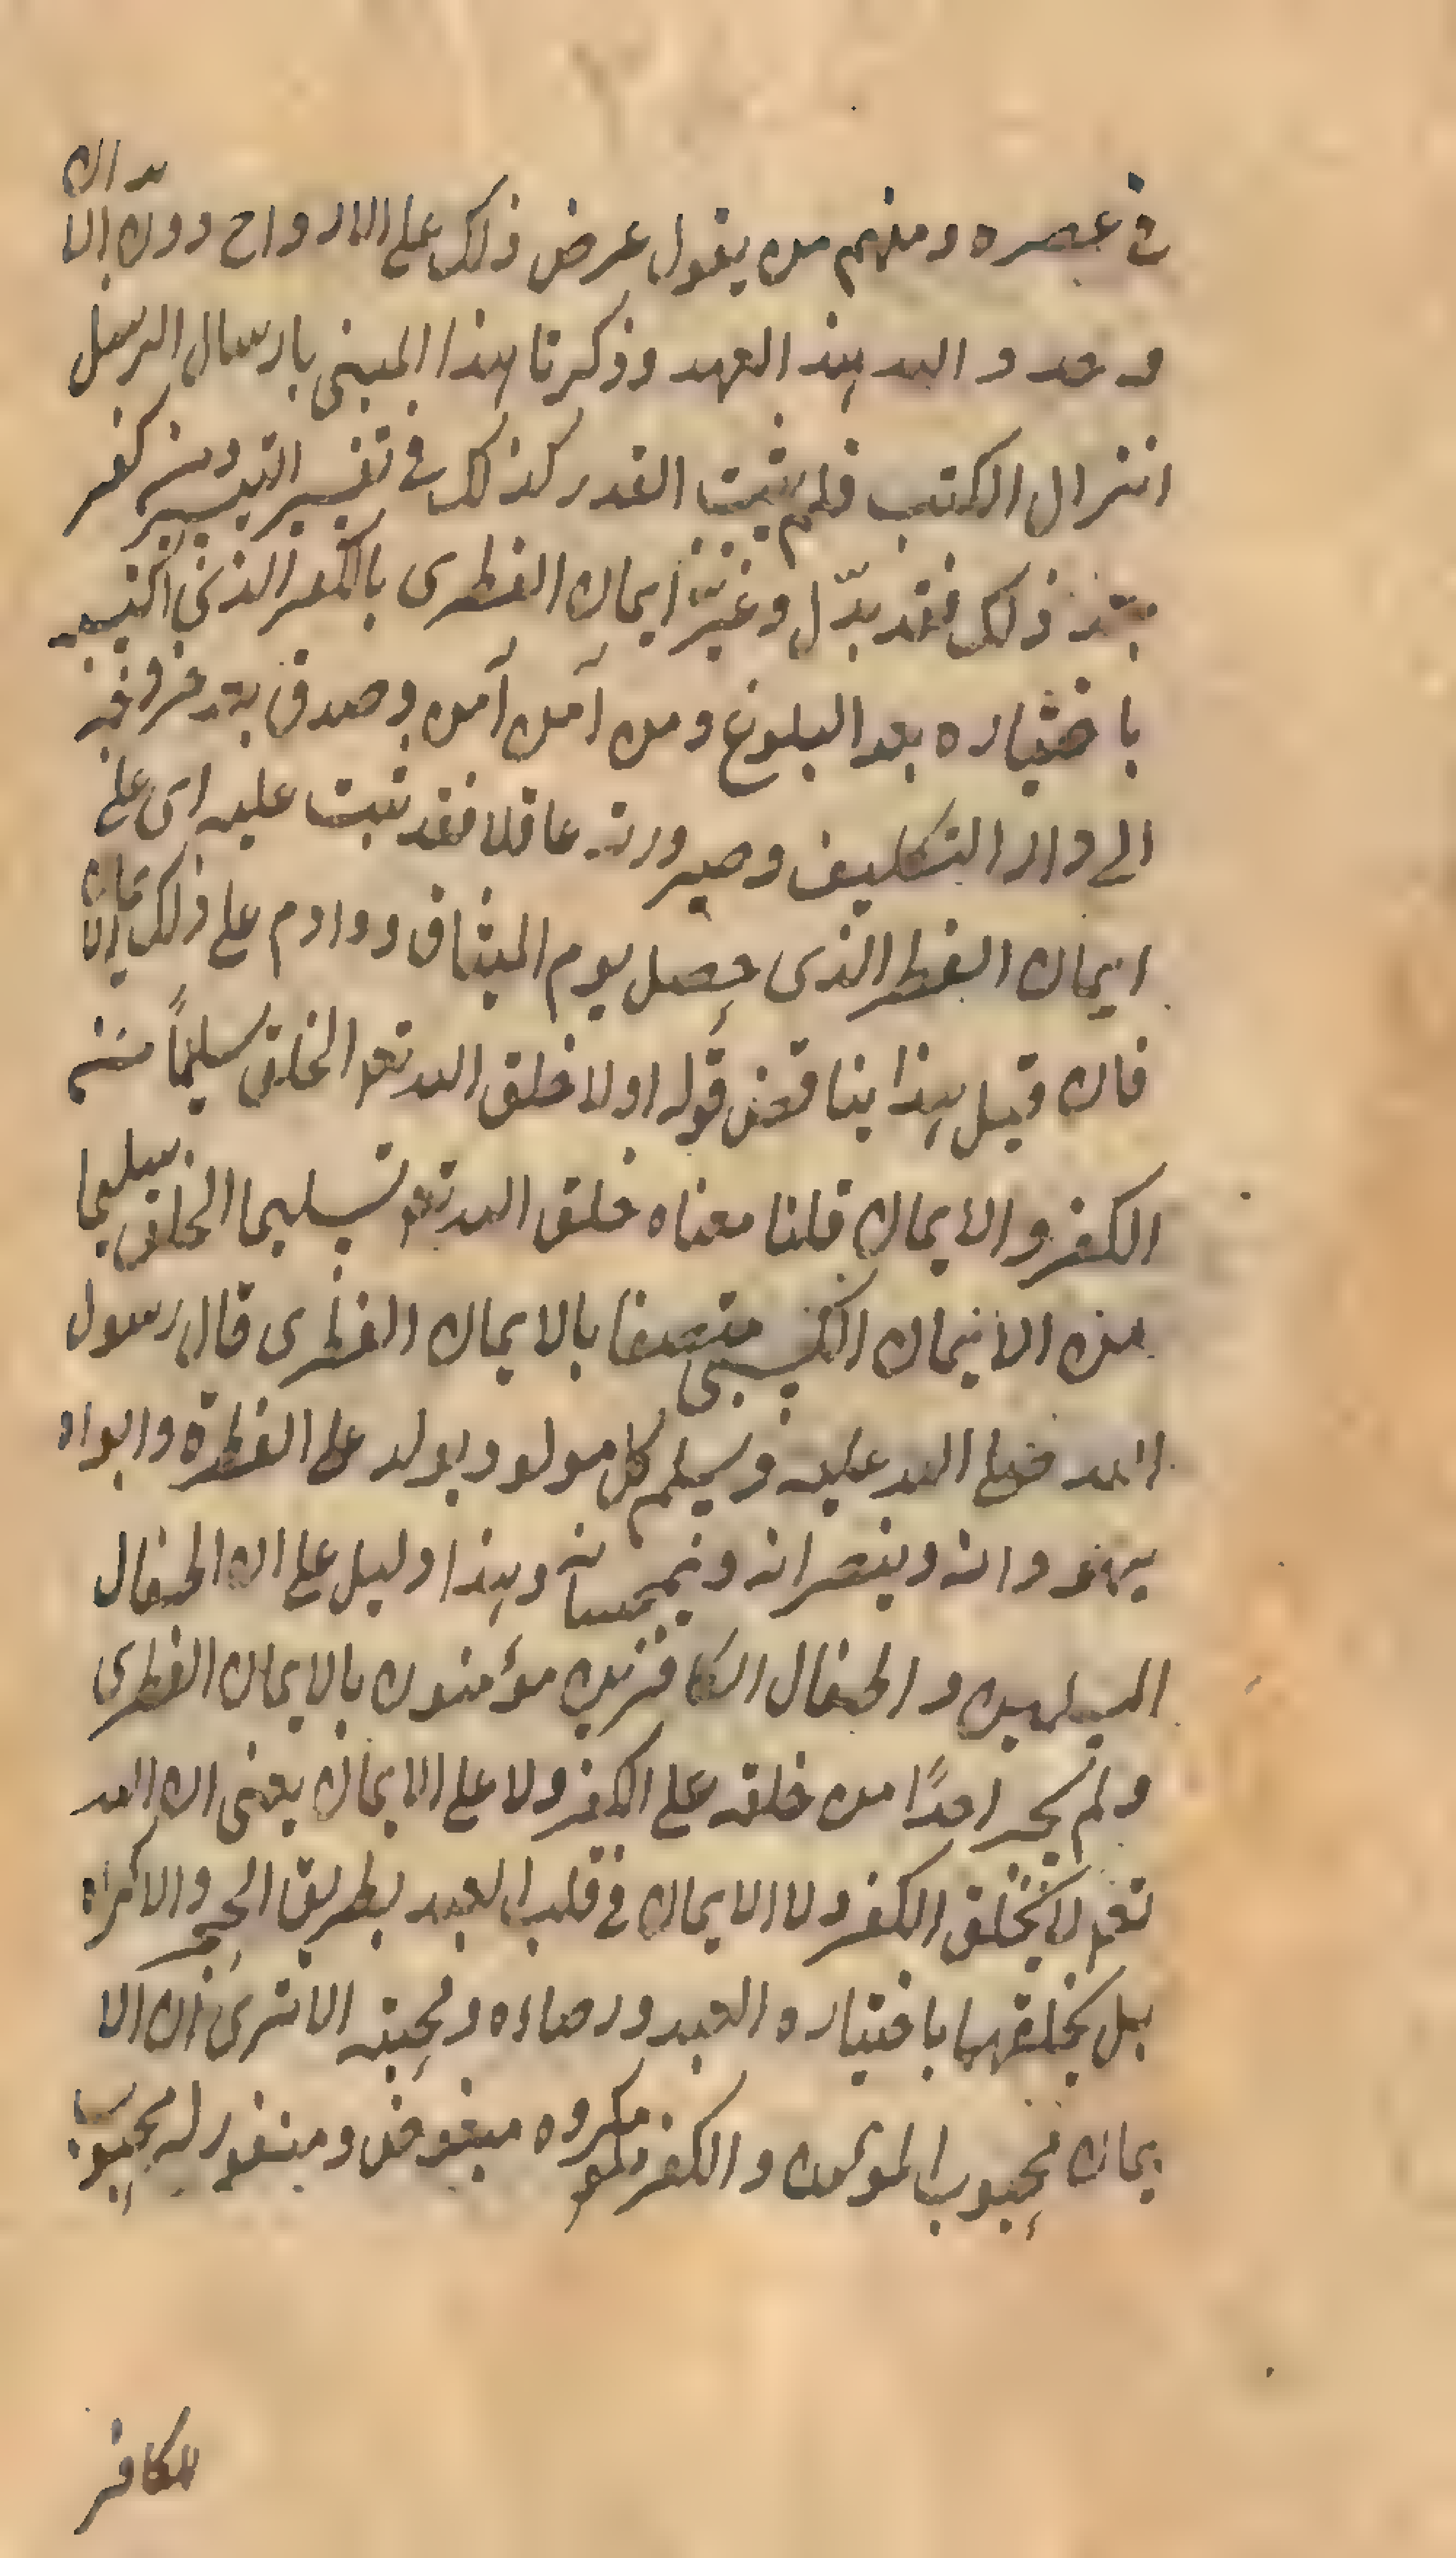 في عصره ومنهم من يقول عرض ذلك على الارواح دون الابدان
وجدد الله هذا العهد وذكرنا هذا المبنى بارسال الرسل
انزال الكتب فلم يثبت القدر كذلك في تفسير التيسير ومن كفر
بعد ذلك فقد بدّل وغيّر ايمان الفطرى بالكفر الذى اكتسبه
باختياره بعد البلوغ ومن آمن آمن وصدق بعد خروجه
الى دار التكليف وصيرورته عاقلا فقد ثبت عليه اى على
ايمان الفطر الذى حصل يوم الميثاق ودوادم على ذلك الايمان
فان قيل هذا يناقض قوله اولا خلق الله تعم الخلق سليماً من
الكفر والايمان قلنا معناه خلق الله تعم تسليما الخلق سليما
من الايمان الكسبى متصفا بالايمان الفطرى قال رسول
الله صلى الله عليه وسلم كل مولود يولد على الفطرة وابواه
يهودانه وينصرانه ويمجسانه وهذا دليل على ان اطفال
المسلمين واطفال الكافرين مؤمنون بالايمان الفطرى
ولم يجبر احدًا من خلقه على الكفر ولا على الايمان يعنى ان الله
تعم لا يخلق الكفر ولا الايمان في قلب العبد بطريق الجبر والاكراه
بل يخلقهما باختياره العبد ورضاءه ومحبته الا ترى ان الا
يمان محبوب المؤمن والكفر مكروه مبغوض ومنفور له محبوب
للكافر